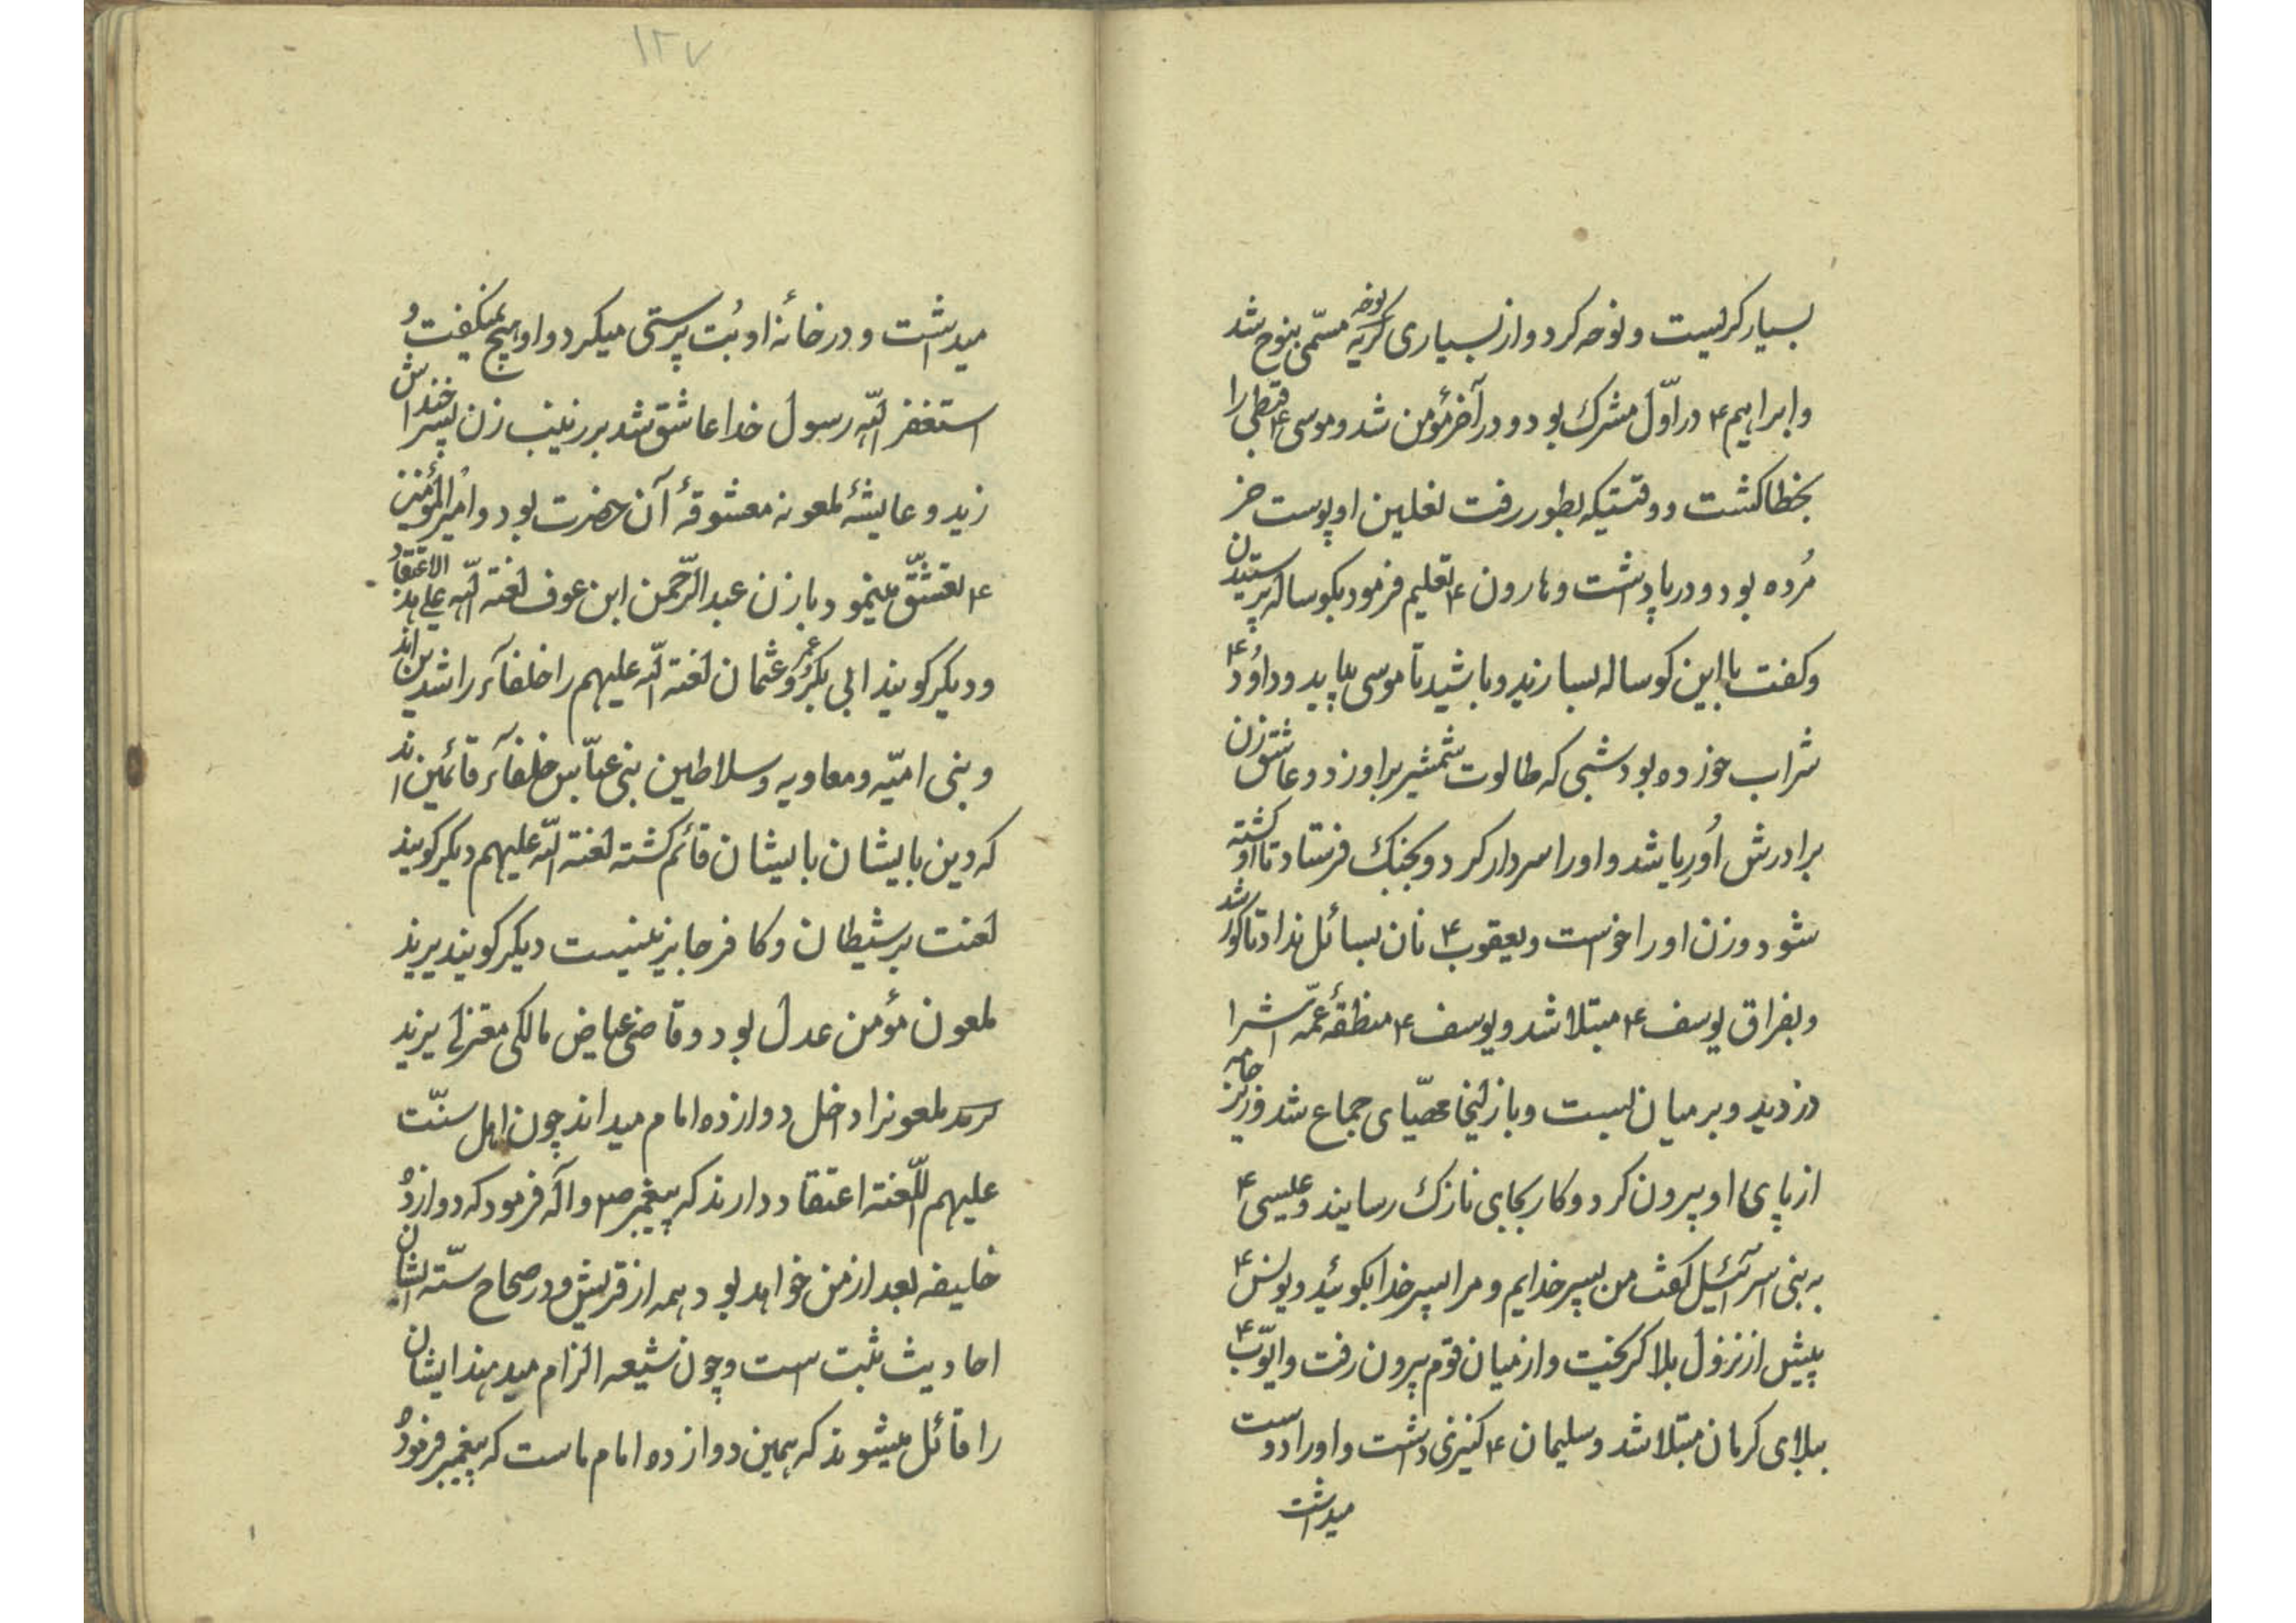 بسیار کریست و نوحه کرد و از بسیاری کریه نوحه مسمّی بنوح شد
و ابراهیم ۴ در اوّل مشرک بود و در آخر مؤمن شد و موسی ۴ قبطی را
بخطا کشت و وقتیکه بطور رفت نعلین او پوست خر
مُرده بود و در پا داشت و هارون ۴ تعلیم فرمود بکوساله پرستیدن
و کفت با این کوساله بسازید و باشید تا موسی بیاید و داوُد ۴
شراب خورده بود شبی که طالوت شمشیر بر او زد و عاشق زن
برادرش اُورِیا شد و او را سردار کرد و بجنک فرستاد تا او کشته
شود و زن او را خواست و یعقوب ۴ نان بسائل نداد تا کور شد
و بفراق یوسف ۴ مبتلا شد و یوسف ۴ منطقهٔ عمّه اش را
دزدید و بر میان بست و با زلیخا مهیّای جماع شد و زیر جامه
از پای او بیرون کرد و کار بجای نازک رسانید و عیسی ۴
به بنی اسرآئیل کفت من پسر خدایم و مرا پسر خدا بکوئید و یونس ۴
پیش از نزول بلا کریخت و از میان قوم بیرون رفت و ایّوب ۴
ببلای کرمان مبتلا شد و سلیمان ۴ کنیزی داشت و او را دوست
میداشت
۱۲۷
میداشت و در خانهٔ او بُت پرستی میکرد و او هیچ نمیکفت و
استغفر اللّه رسول خدا عاشق شد بر زینب زن پسر خوانداش
زید و عایشهٔ ملعونه معشوقهٔ آن حضرت بود و امیر المؤمنین
۴ تعشّق مینمود با زن عبد الرّحمن ابن عوف لعنة اللّه علی هذ الاعتقاد
و دیکر کویند ابی بکر و عمر و عثمان لعنة اللّه علیهم را خلفآء راشدین اند
و بنی امیّه و معاویه و سلاطین بنی عبّاس خلفآء قائمین اند
که دین بایشان بایشان قائم کشته لعنة اللّه علیهم دیکر کویند
لعنت بر شیطان و کافر جایز نیست دیکر کویند یزید
ملعون مؤمن عدل بود و قاضی عیاض مالکی معتزلی یزید
ملعونرا داخل دوازده امام میداند چون اهل سنّت
علیهم اللّعنة اعتقاد دارند که پیغمبر ص و آله فرمود که دوازده
خلیفه بعد از من خواهد بود همه از قریش و در صحاح ستّه ایشان
احادیث ثبت است و چون شیعه الزام میدهند ایشان
را قائل میشوند که همین دوازده امام ماست که پیغمبر فرموده